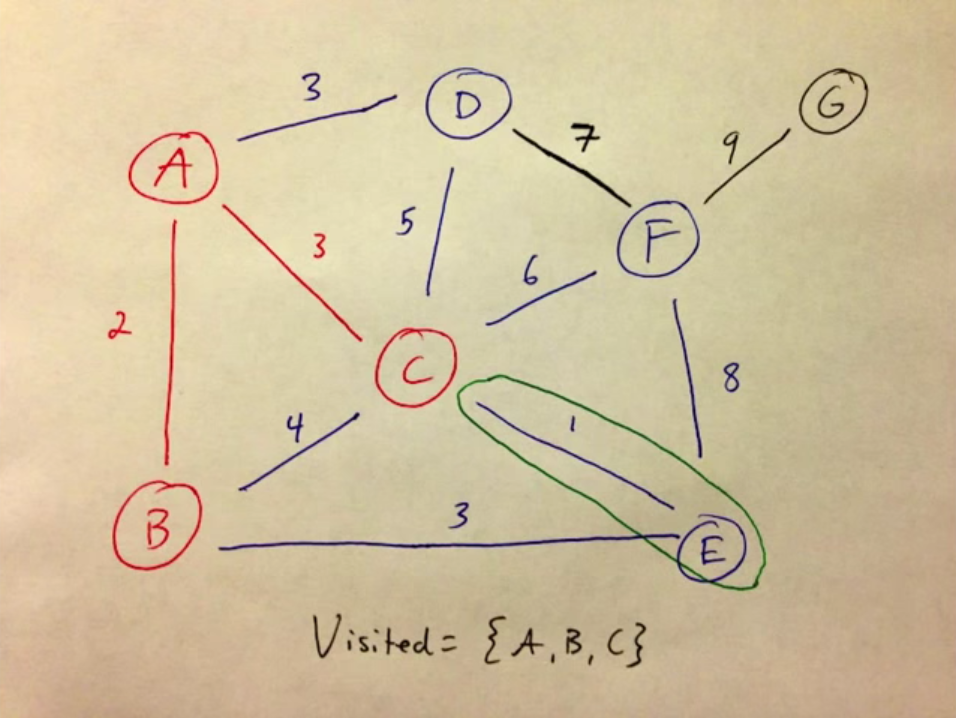 3
D
G
7
9
A
5
F
3
6
2
C
8
4
1
3
B
E
Visited = {A, B, C}